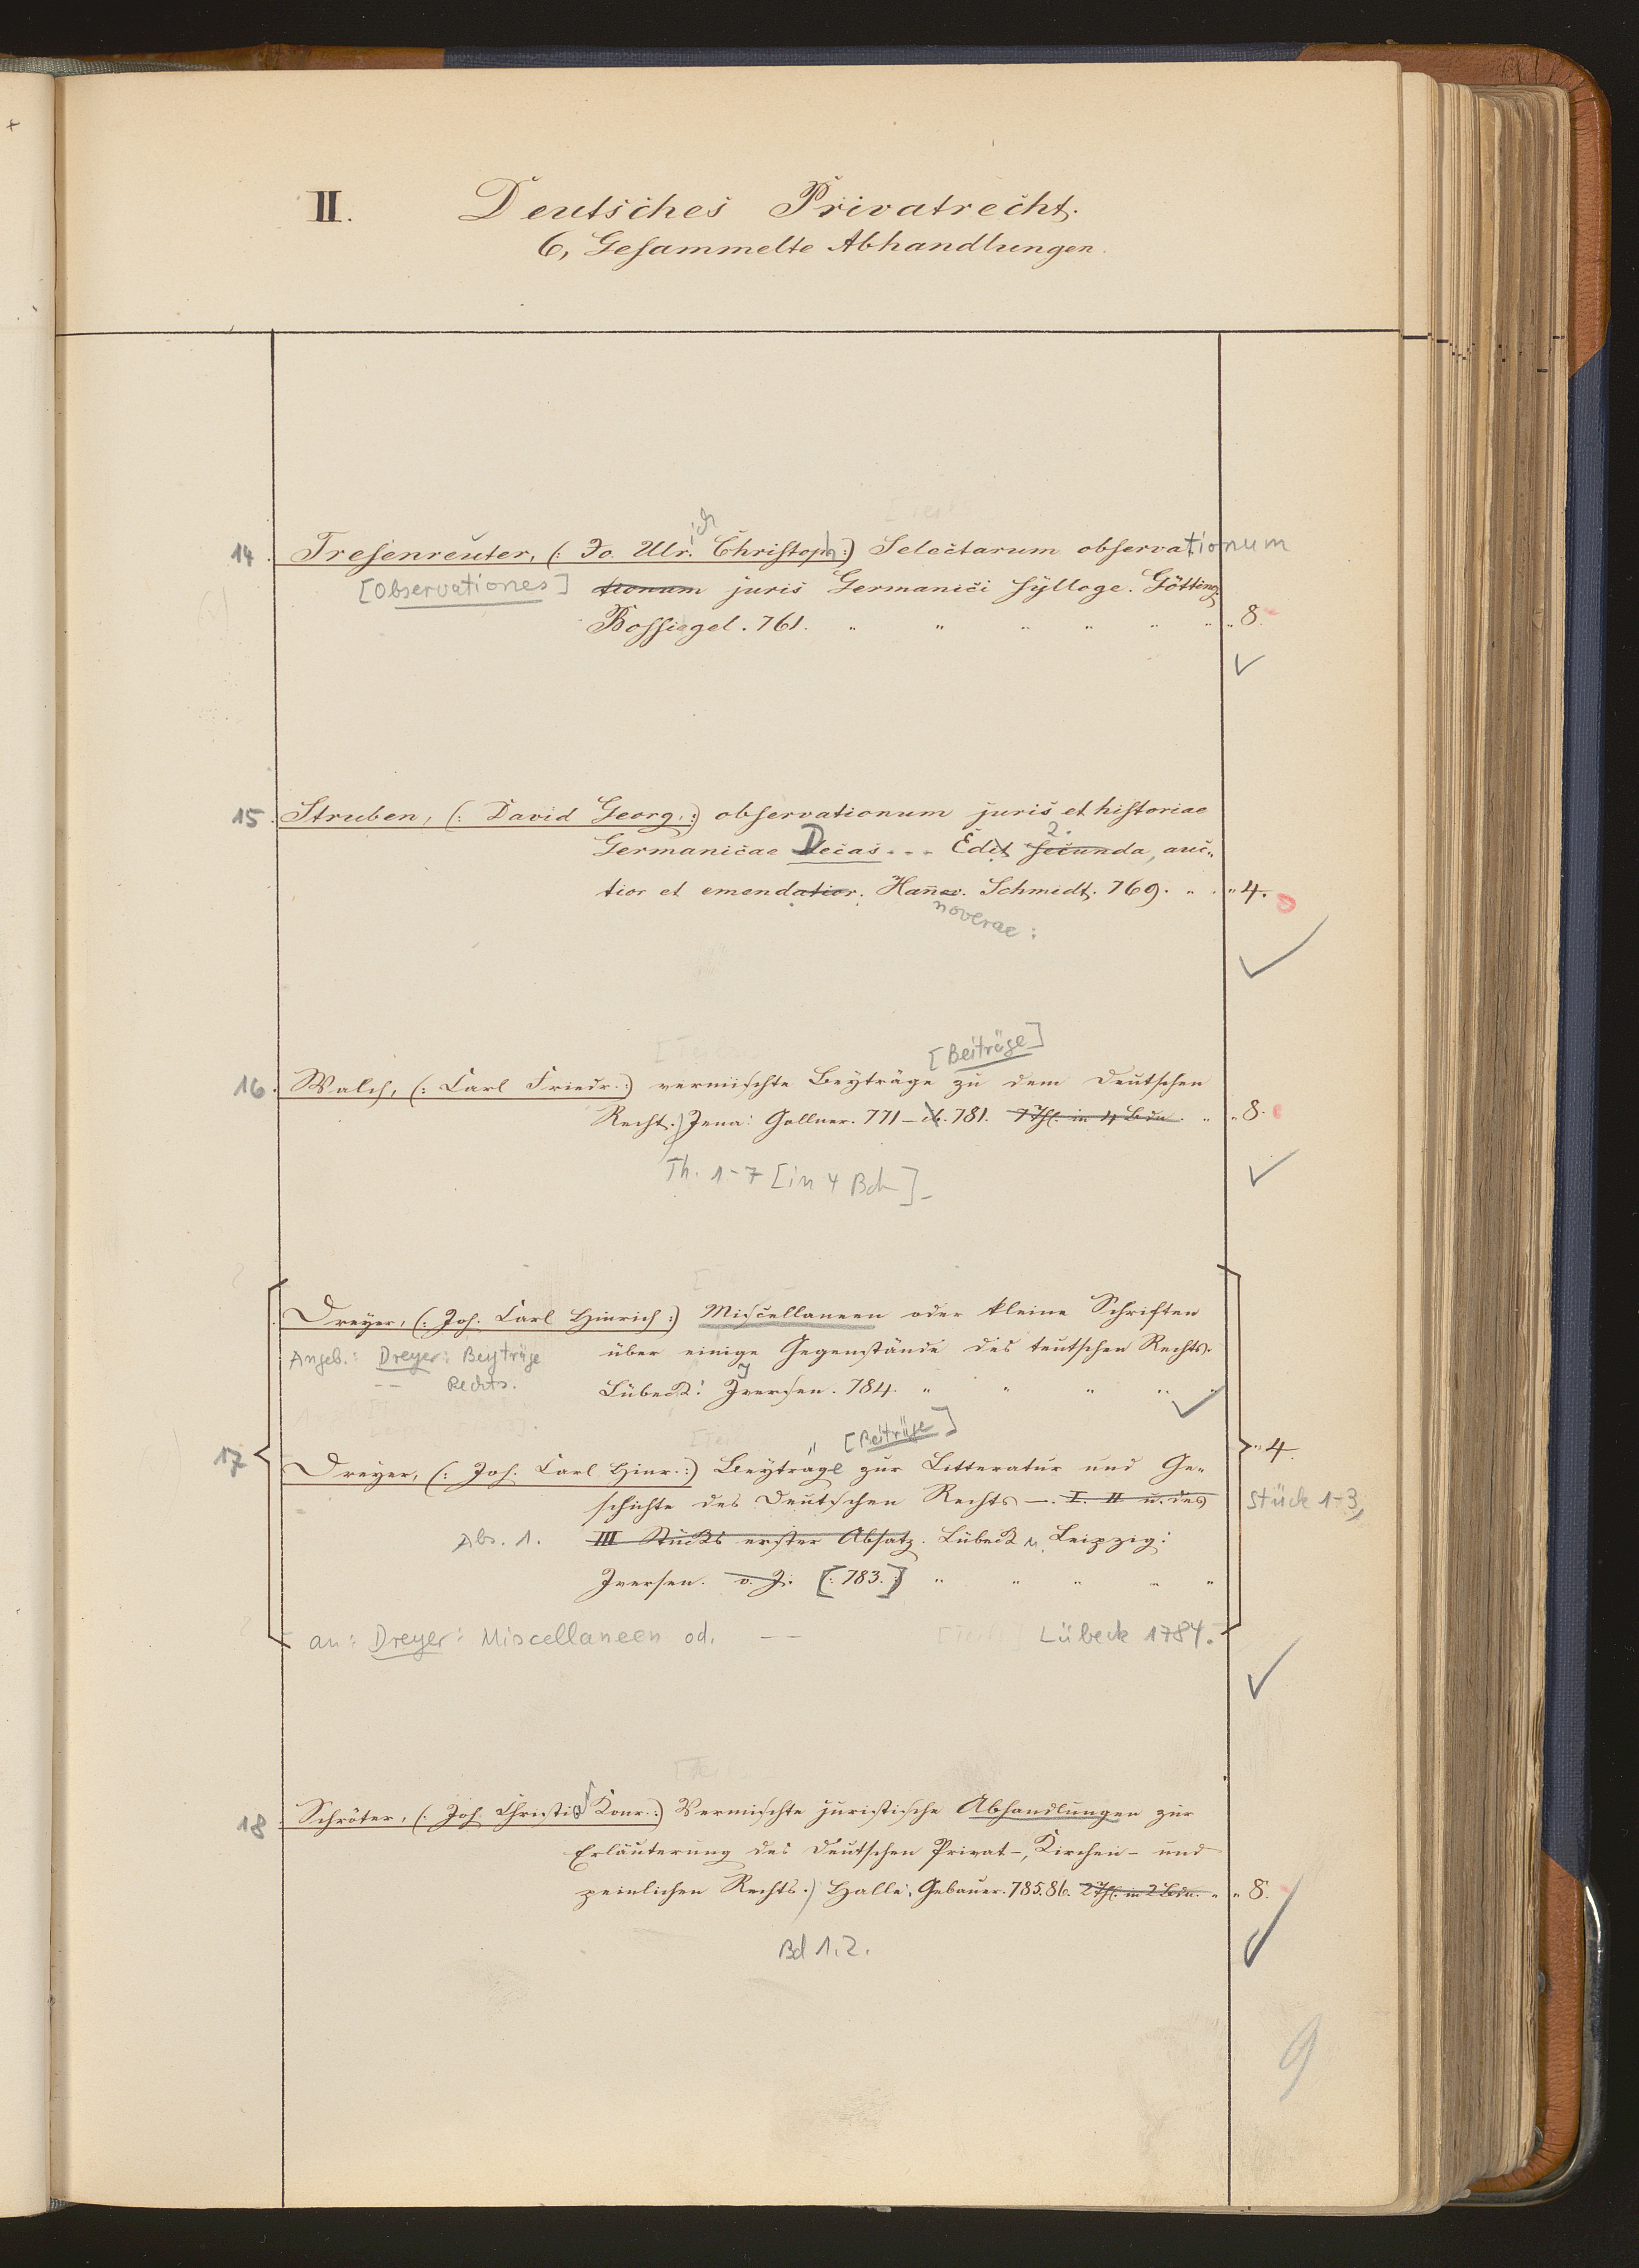 II. Deutsches Privatrecht.
6, Gesammelte Abhandlungen.
14. Tresenreuter, (: Jo. Ulr. ich Christoph :) Selectarum observationum
[Observationes] tionum juris Germanici sylloge. Götting.
Bossiegel. 761. " " " " " " " 8.
15. Struben, (: David Georg. :) observationum juris et historiae
2.
Germanicae Decas ... Edit secunda, auc-
tior et emendatior. Hannov. Schmidt. 769. " . " 4.
noverae:
[Beiträge]
16. Walch, (: Carl Friedr. :) vermischte Beyträge zu dem Deutschen
Recht. Jena: Gollner. 771 – 781. 7 Thl. in 4 Bdn. " " 8.
Th. 1-7 [in 4 Bdn]
Dreyer, (: Joh. Carl Hinrich :) Miscellaneen oder kleine Schriften
Angeb.: Dreyer: Beyträge über einige Gegenstände des teutschen Rechts.
— Rechts. Lübeck: Iversen. 784. " " " " "
[Beiträge]
17 Dreyer, (: Joh. Carl Hinr. :) Beyträge zur Litteratur und Ge- " 4.
schichte des Deutschen Rechts —. I. II u. des Stück 1-3,
Abs. 1. III Stücks erster Absatz. Lübeck u. Leipzig:
Iversen. o. J. [: 783. :] " " " " "
an: Dreyer: Miscellaneen od. — [Teil] Lübeck 1784.
18 Schröter, (: Joh. Christia Konr. :) Vermischte juristische Abhandlungen zur
Erläuterung des Deutschen Privat-, Kirchen- und
peinlichen Rechts. Halle, Gebauer. 785.86. 2 Thl. in 2 Bdn. " " 8.
Bd 1.2.
9